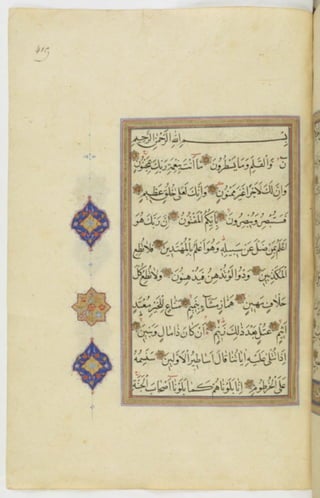 بسم الله الرحمن الرحيم
ن والقلم وما يسطرون ما أنت بنعمة ربك بمجنون
وإن لك لأجرا غير ممنون وإنك لعلى خلق عظيم
فستبصر ويبصرون بأيكم المفتون إن ربك هو
أعلم بمن ضل عن سبيله وهو أعلم بالمهتدين فلا تطع
المكذبين ودوا لو تدهن فيدهنون ولا تطع كل
حلاف مهين هماز مشاء بنميم مناع للخير معتد
أثيم عتل بعد ذلك زنيم أن كان ذا مال وبنين
إذا تتلى عليه آياتنا قال أساطير الأولين سنسمه
على الخرطوم إنا بلوناهم كما بلونا أصحاب الجنة